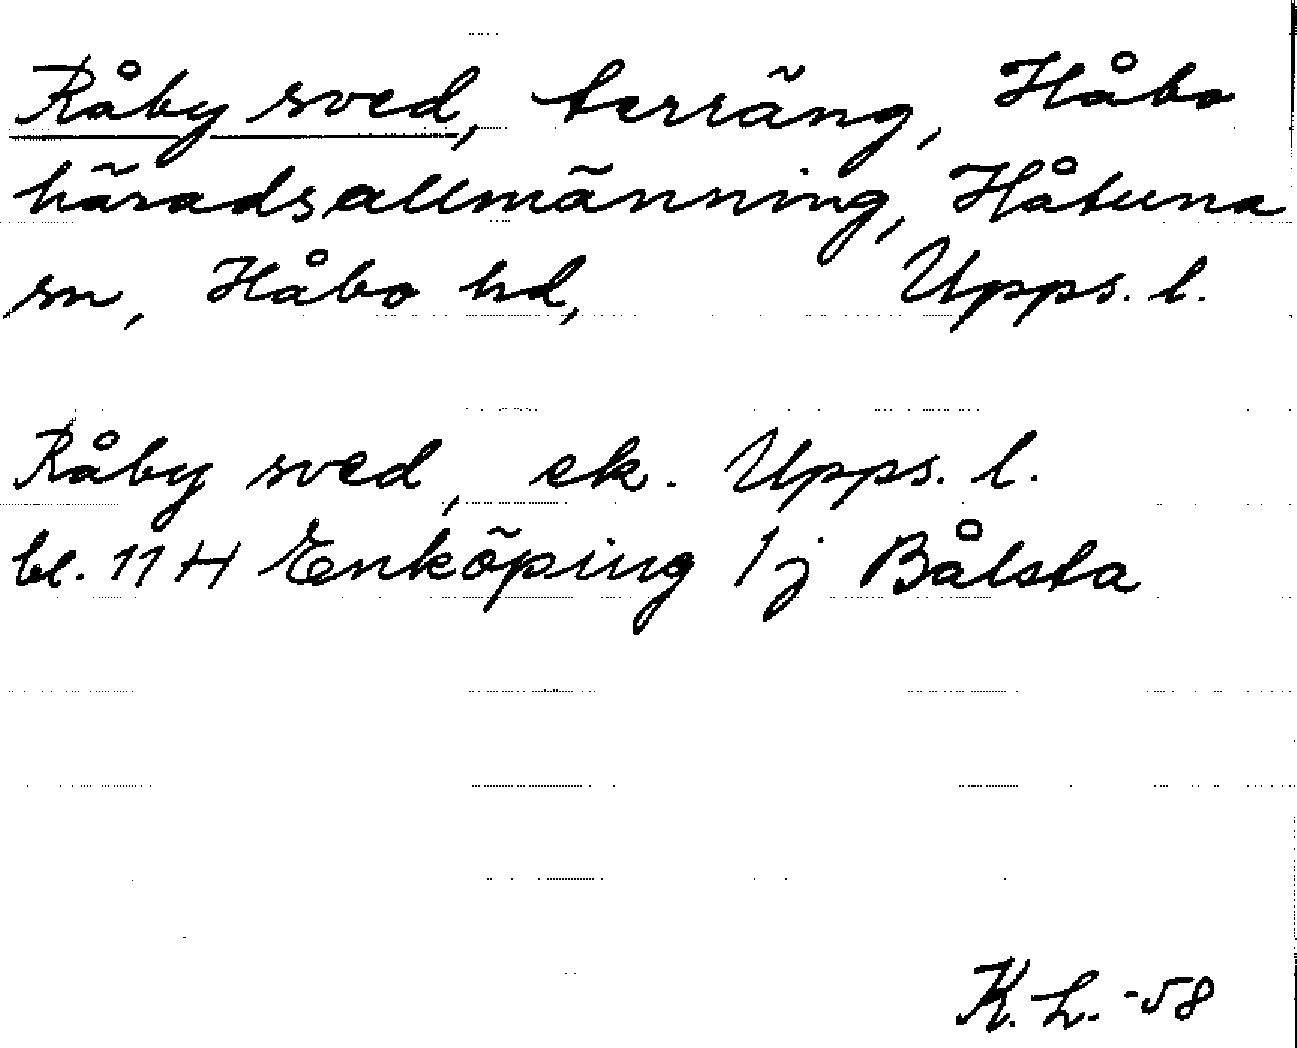 Råby sved, terräng, Håbo
häradsallmänning, Håtuna
sn, Håbo hd, Upps. l.
Råby sved, ek. Upps. l.
bl. 11 H Enköping 1 j Bålsta
K. L. -58